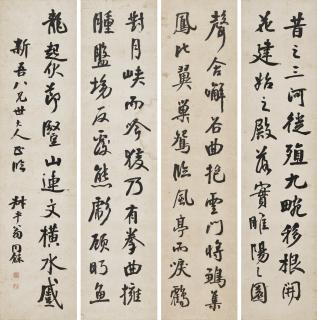 昔之三河徙殖九畹移根開
花建始之殿落實睢陽之園
聲含嶰谷曲抱雲門將鵷集
鳳比翼巢鴛臨風亭而唳鶴
對月峽而吟猨乃有拳曲擁
腫盤坳反覆熊彪顧盼魚
龍起伏節豎山連文橫水蹙
斯吾八兄世大人正臨 叔平翁同龢